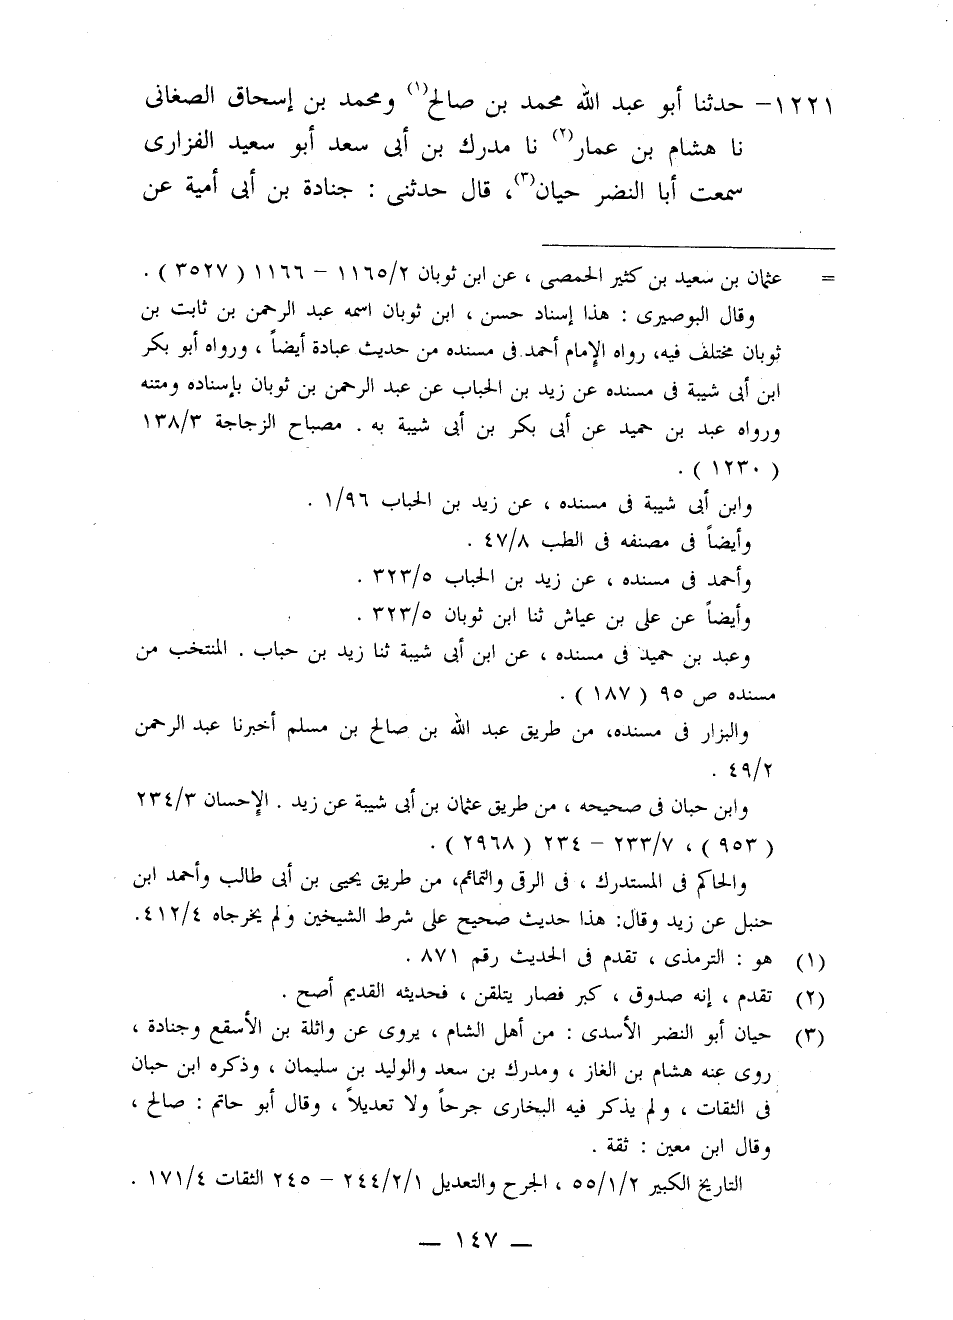 ١٢٢١– حدثنا أبو عبد الله محمد بن صالح(١) ومحمد بن إسحاق الصغانى
نا هشام بن عمار(٢) نا مدرك بن أبى سعد أبو سعيد الفزارى
سمعت أبا النضر حيان(٣)، قال حدثنى : جنادة بن أبى أمية عن
= عثمان بن سعيد بن كثير الحمصى ، عن ابن ثوبان ١١٦٥/٢ – ١١٦٦ ( ٣٥٢٧ ) .
وقال البوصيرى : هذا إسناد حسن ، ابن ثوبان اسمه عبد الرحمن بن ثابت بن
ثوبان مختلف فيه، رواه الإمام أحمد فى مسنده من حديث عبادة أيضاً ، ورواه أبو بكر
ابن أبى شيبة فى مسنده عن زيد بن الحباب عن عبد الرحمن بن ثوبان بإسناده ومتنه
ورواه عبد بن حميد عن أبى بكر بن أبى شيبة به . مصباح الزجاجة ١٣٨/٣
( ١٢٣٠ ) .
وابن أبى شيبة فى مسنده ، عن زيد بن الحباب ١/٩٦ .
وأيضاً فى مصنفه فى الطب ٤٧/٨ .
وأحمد فى مسنده ، عن زيد بن الحباب ٣٢٣/٥ .
وأيضاً عن على بن عياش ثنا ابن ثوبان ٣٢٣/٥ .
وعبد بن حميد فى مسنده ، عن ابن أبى شيبة ثنا زيد بن حباب . المنتخب من
مسنده ص ٩٥ ( ١٨٧ ) .
والبزار فى مسنده، من طريق عبد الله بن صالح بن مسلم أخبرنا عبد الرحمن
٤٩/٢ .
وابن حبان فى صحيحه ، من طريق عثمان بن أبى شيبة عن زيد . الإحسان ٢٣٤/٣
( ٩٥٣ ) ، ٢٣٣/٧ – ٢٣٤ ( ٢٩٦٨ ) .
والحاكم فى المستدرك ، فى الرقى والتمائم، من طريق يحيى بن أبى طالب وأحمد ابن
حنبل عن زيد وقال: هذا حديث صحيح على شرط الشيخين ولم يخرجاه ٤١٢/٤.
(١) هو : الترمذى ، تقدم فى الحديث رقم ٨٧١ .
(٢) تقدم ، إنه صدوق ، كبر فصار يتلقن ، فحديثه القديم أصح .
(٣) حيان أبو النضر الأسدى : من أهل الشام ، يروى عن واثلة بن الأسقع وجنادة ،
روى عنه هشام بن الغاز ، ومدرك بن سعد والوليد بن سليمان ، وذكره ابن حبان
فى الثقات ، ولم يذكر فيه البخارى جرحاً ولا تعديلاً ، وقال أبو حاتم : صالح ،
وقال ابن معين : ثقة .
التاريخ الكبير ٥٥/١/٢ ، الجرح والتعديل ٢٤٤/٢/١ – ٢٤٥ الثقات ١٧١/٤ .
— ١٤٧ —